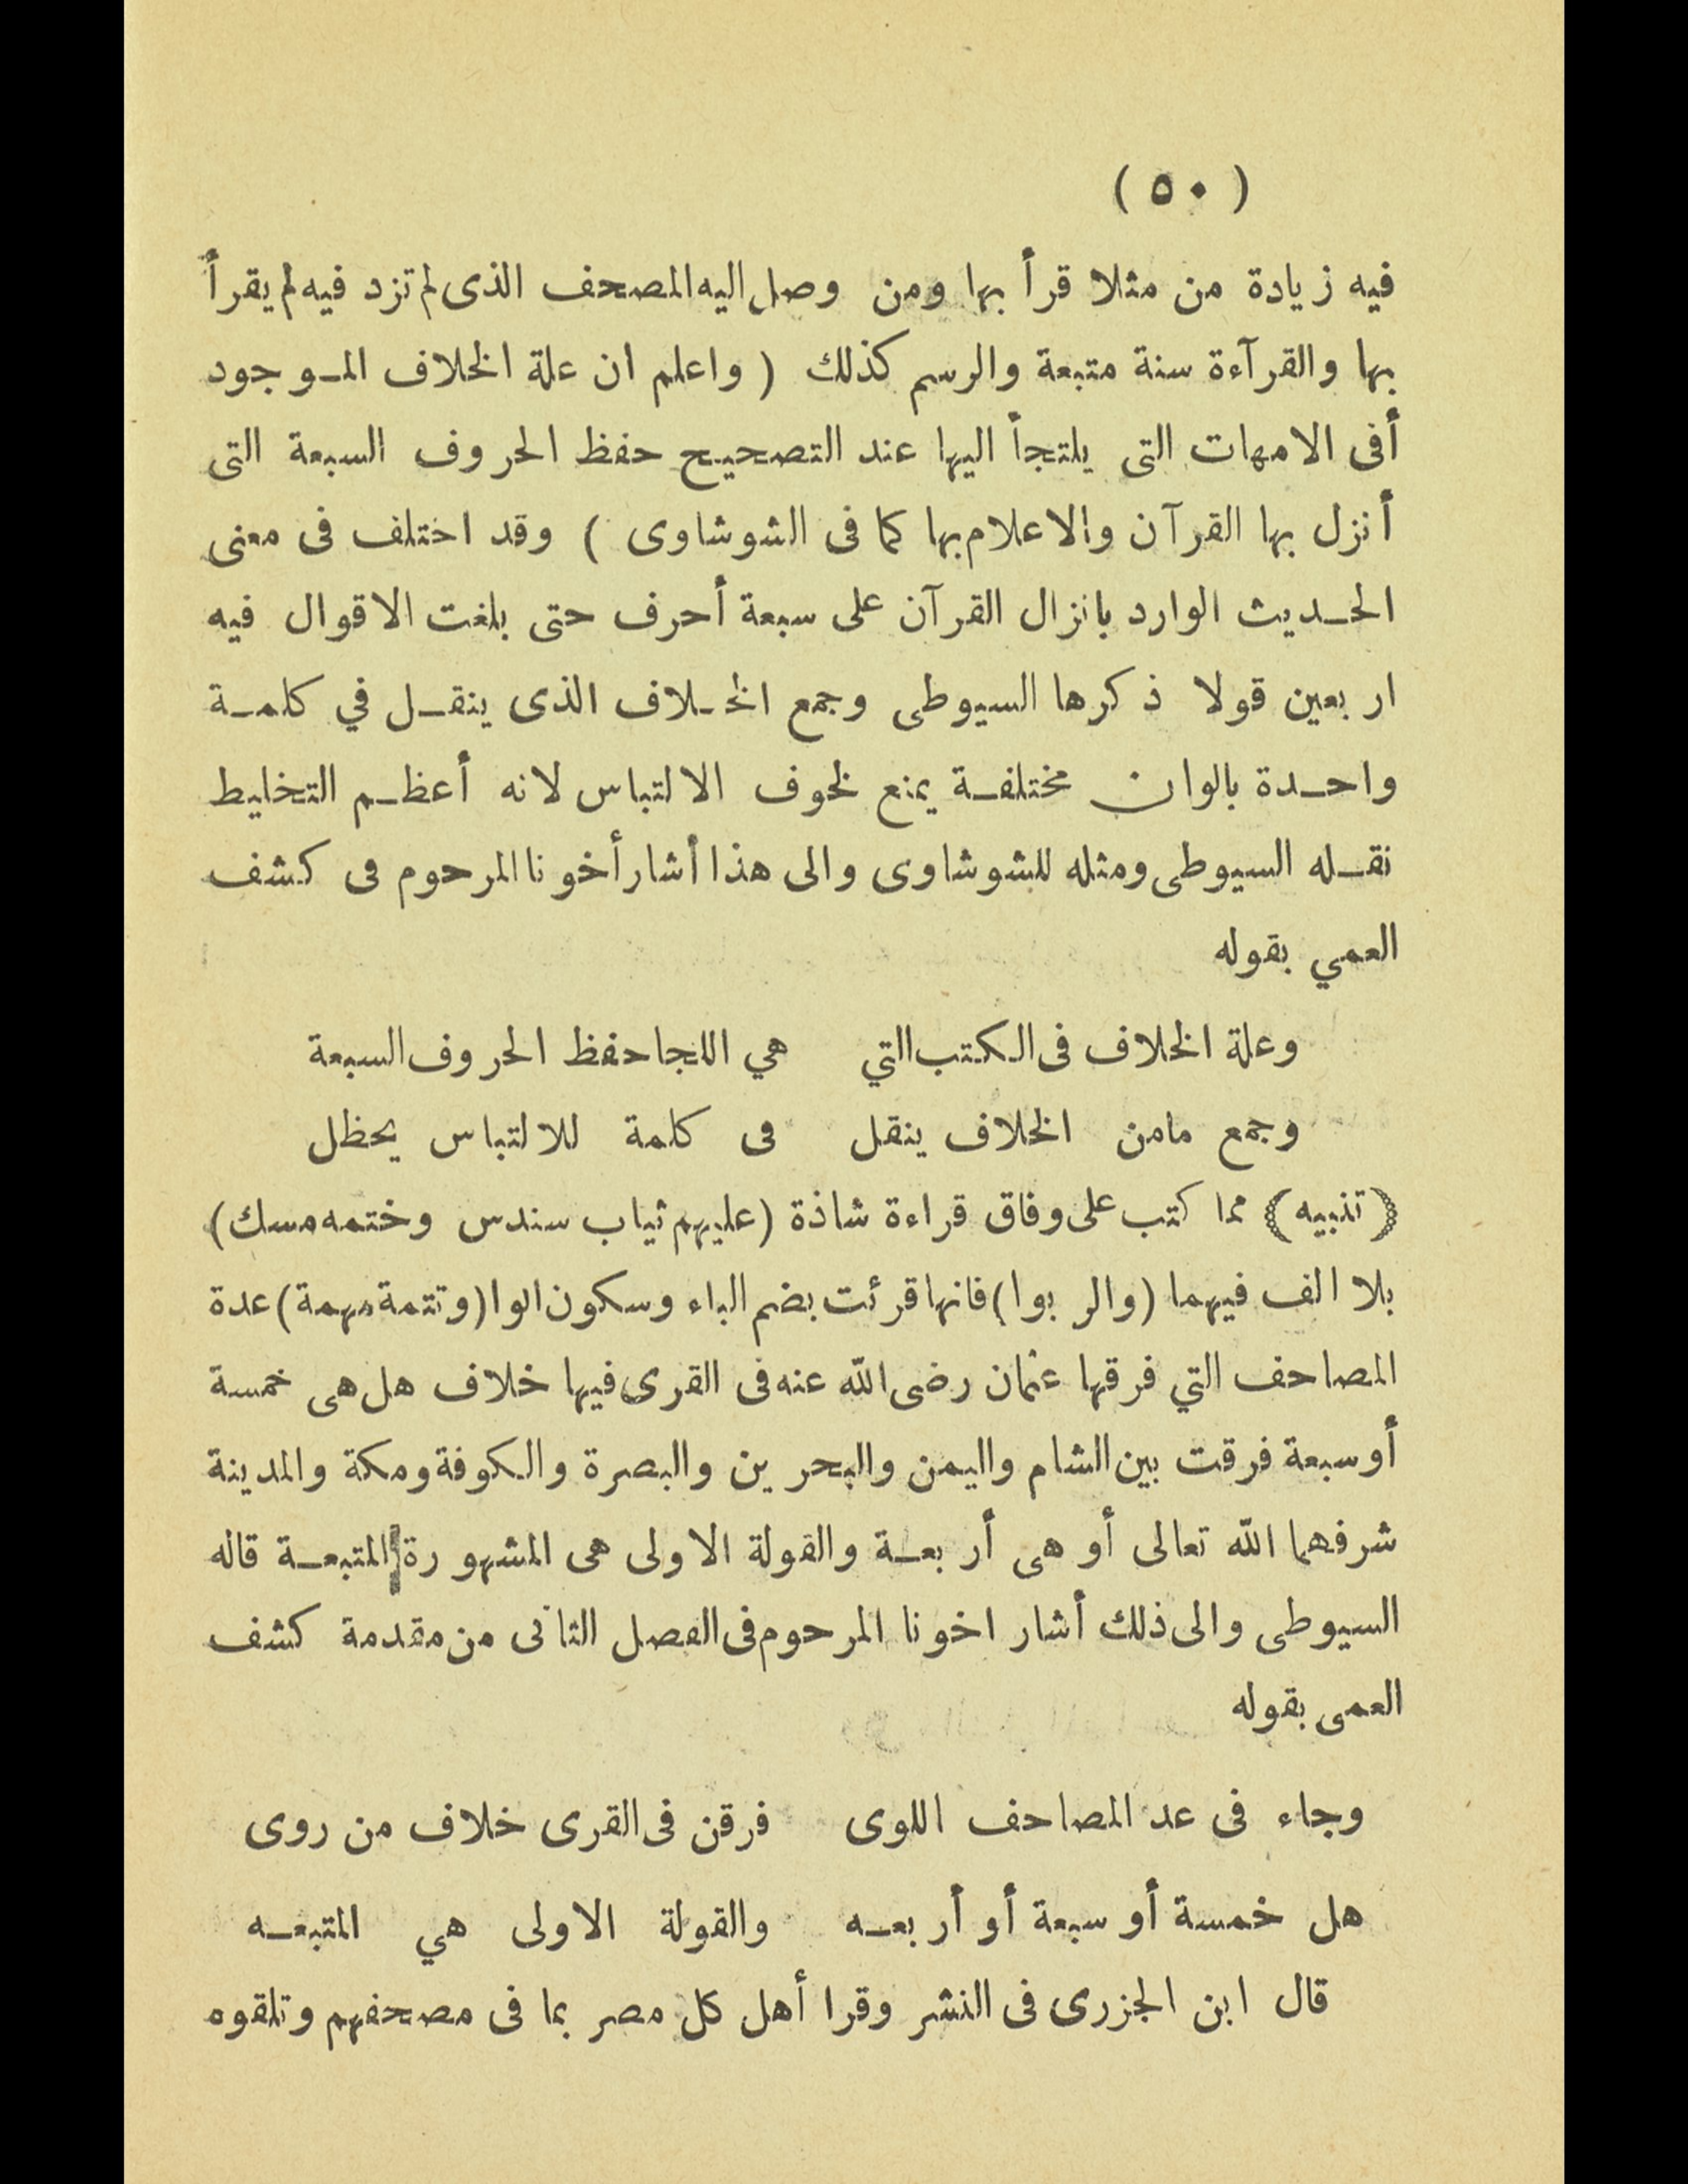 ( ٥٠ )
فيه زيادة من مثلا قرأ بها ومن وصل اليه المصحف الذى لم تزد فيه لم يقرأ
بها والقرآءة سنة متبعة والرسم كذلك ( واعلم ان علة الخلاف الموجود
أفى الامهات التى يلتجأ اليها عند التصحيح حفظ الحروف السبعة التى
أنزل بها القرآن والاعلام بها كما فى الشوشاوى ) وقد اختلف فى معنى
الحديث الوارد بانزال القرآن على سبعة أحرف حتى بلغت الاقوال فيه
اربعين قولا ذكرها السيوطى وجمع الخلاف الذى ينقل في كلمة
واحدة بالوان مختلفة يمنع لخوف الالتباس لانه أعظم التخليط
نقله السيوطى ومثله للشوشاوى والى هذا أشار أخونا المرحوم فى كشف
العمي بقوله
وعلة الخلاف فى الكتب التي هي اللجا حفظ الحروف السبعة
وجمع مامن الخلاف ينقل فى كلمة للالتباس يحظل
(تنبيه) مما كتب على وفاق قراءة شاذة (عليهم ثياب سندس وختمه مسك)
بلا الف فيهما (والربوا) فانها قرئت بضم الباء وسكون الوا (وتتمة مهمة) عدة
المصاحف التي فرقها عثمان رضى الله عنه فى القرى فيها خلاف هل هى خمسة
أو سبعة فرقت بين الشام واليمن والبحرين والبصرة والكوفة ومكة والمدينة
شرفهما الله تعالى أو هى أربعة والقولة الاولى هى المشهورة المتبعة قاله
السيوطى والى ذلك أشار اخونا المرحوم فى الفصل الثانى من مقدمة كشف
العمى بقوله
وجاء فى عد المصاحف اللوى فرقن فى القرى خلاف من روى
هل خمسة أو سبعة أو أربعه والقولة الاولى هي المتبعه
قال ابن الجزرى فى النشر وقرا أهل كل مصر بما فى مصحفهم وتلقوه